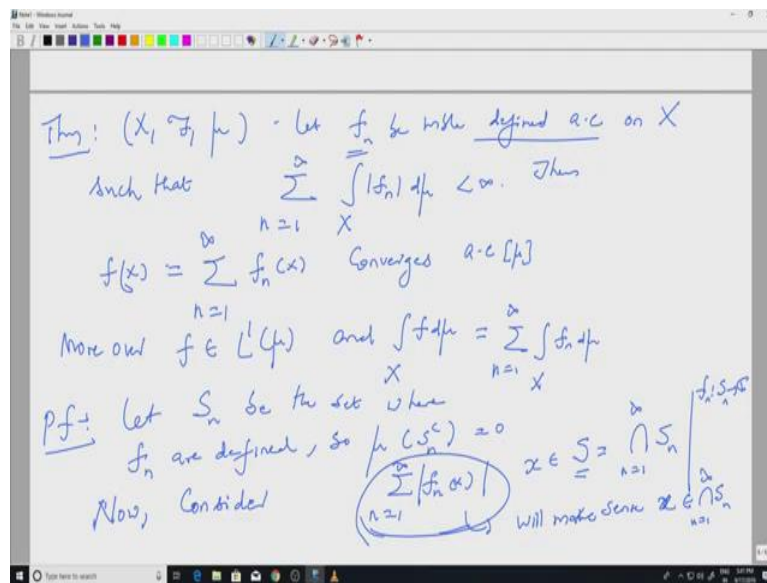 Note1 - Windows Journal
File Edit View Insert Actions Tools Help
Thm: (X, F, μ) - Let f_n be mble defined a.e on X
such that ∑_{n=1}^∞ ∫_X |f_n| dμ < ∞. Then
f(x) = ∑_{n=1}^∞ f_n(x) Converges a.e [μ]
More over f ∈ L^1(μ) and ∫_X f dμ = ∑_{n=1}^∞ ∫_X f_n dμ
Pf: Let S_n be the set where
f_n are defined, so μ(S_n^c) = 0 x ∈ S = ⋂_{n=1}^∞ S_n
Now, Consider ∑_{n=1}^∞ |f_n(x)| will make sense x ∈ ⋂_{n=1}^∞ S_n
Type here to search